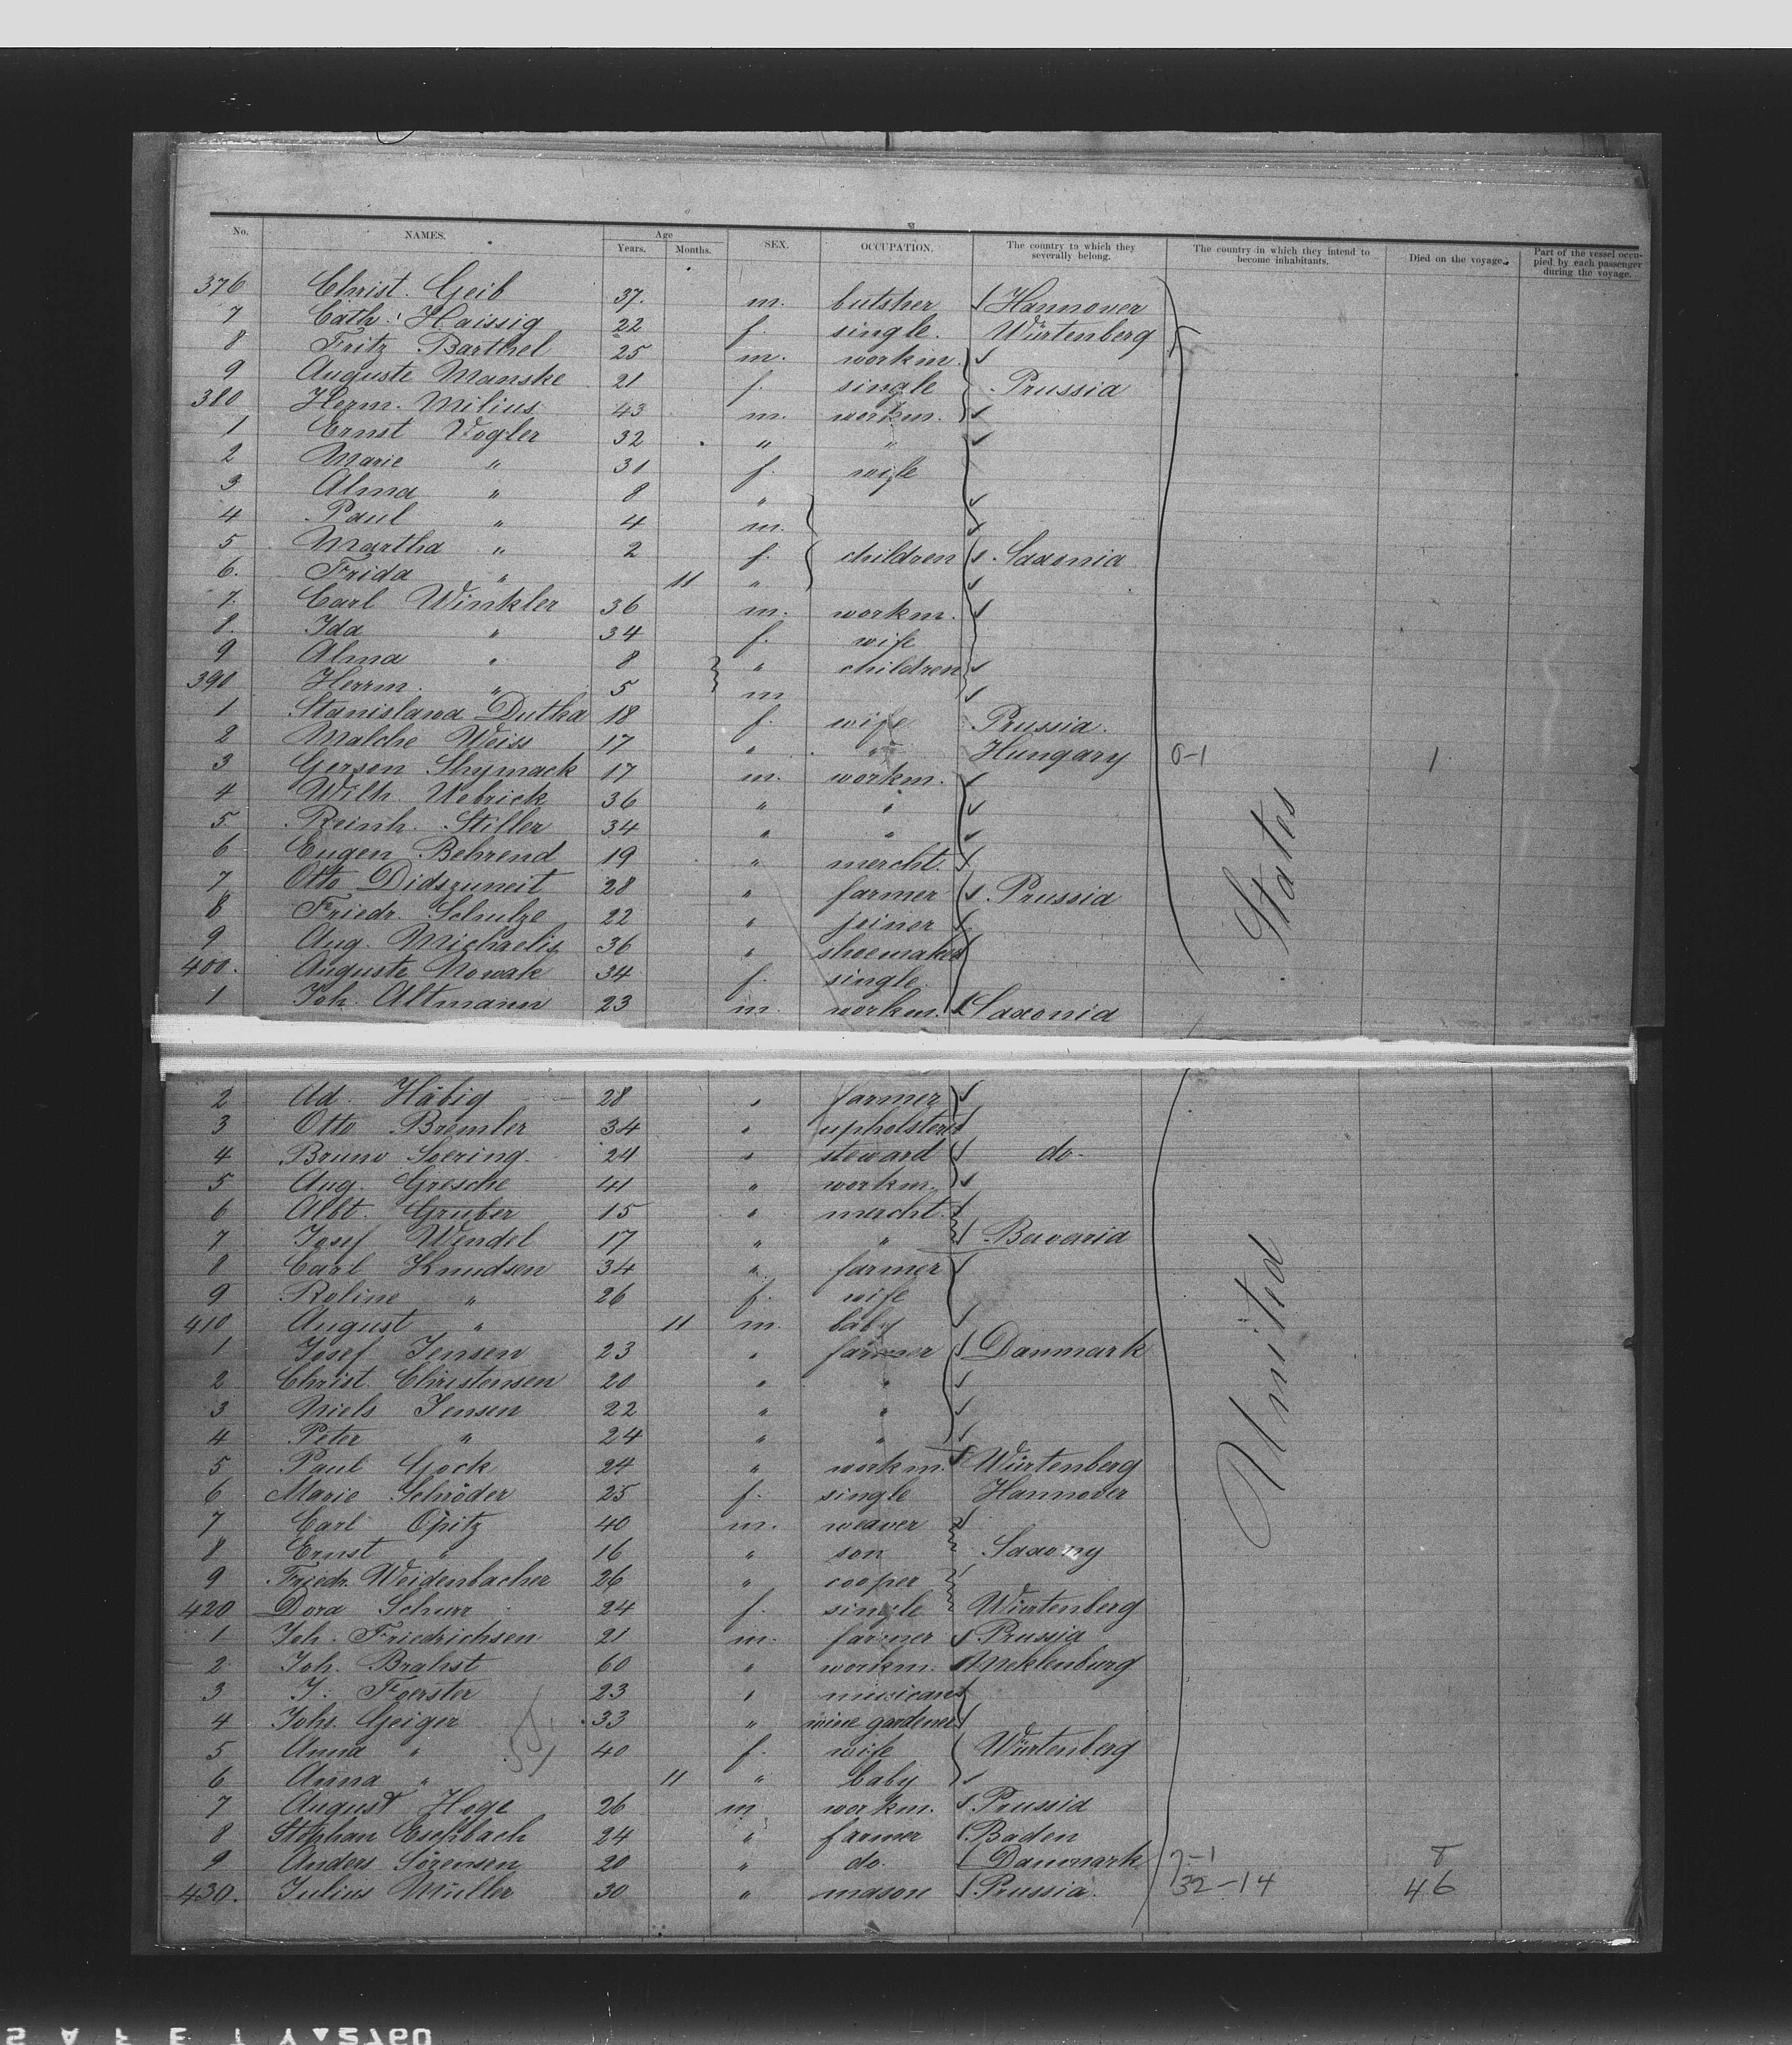 No. NAMES. Age Years. Months. SEX. OCCUPATION. The country to which they severally belong. The country in which they intend to become inhabitants. Died on the voyage. Part of the vessel occupied by each passenger during the voyage.
376 Christ. Geib 37. m. butsher Hannover
7 Cath. Haissig 22 f. single. Würtenberg
8 Fritz Barthel 25 m. workm.
9 Auguste Manske 21 f. single Prussia
380 Herm. Milius 43 m. workm.
1 Ernst Vogler 32 " "
2 Marie " 31 f. wife
3 Alma " 8 "
4 Paul " 4 m.
5 Martha " 2 f. children Saxonia
6. Frida " 11 "
7. Carl Winkler 36 m. workm.
8. Ida " 34 f. wife
9 Alma " 8 " children
390 Herrm. " 5 m
1 Stanislawa Dutka 18 f. wife Prussia.
2 Malche Weiss 17 " " Hungary 0-1 1
3 Gerson Shymack 17 m. workm.
4 Wilh. Uebrick 36 " "
5 Reinh. Stiller 34 " "
6 Eugen Behrend 19 " mercht.
7 Otto Didszuneit 28 " farmer Prussia
8 Friedr. Schulze 22 " joiner
9 Aug. Michaelis 36 " shoemaker
400. Auguste Nowak 34 f. single.
1 Joh. Altmann 23 m. workm. Saxonia
States
2 Ad. Häbig 28 " farmer
3 Otto Bremler 34 " upholsterer
4 Bruno Soering 24 " steward do-
5 Aug. Gresche 41 " workm.
6 Albt. Gruber 15 " mercht.
7 Josef Wendel 17 " " Bavaria
8 Carl Knudsen 34 " farmer
9 Roline " 26 f. wife
410 August " 11 m. baby
1 Josef Jensen 23 " farmer Danmark
2 Christ. Christensen 20 " "
3 Niels Jensen 22 " "
4 Peter " 24 " "
5 Paul Gock 24 " workm. Würtenberg
6 Marie Schröder 25 f. single Hannover
7 Carl Opitz 40 m. weaver
8 Ernst " 16 " son Saxony
9 Friedr. Weidenbacher 26 " cooper
420 Dora Schurr 24 f. single Würtenberg
1 Joh. Friedrichsen 21 m. farmer Prussia
2 Joh. Brahst 60 " workm. Meklenburg
3 J. Foerster 23 " musicant
4 Johs. Geiger 33 " wine gardener
5 Anna " 40 f. wife Würtenberg
6 Anna " 11 " baby
7 August Hege 26 m workm. Prussia
8 Stephan Eschbach 24 " farmer Baden
9 Anders Sörensen 20 " do. Danmark 7-1 8
430. Julius Müller 30 " mason Prussia. 32-14 46
United